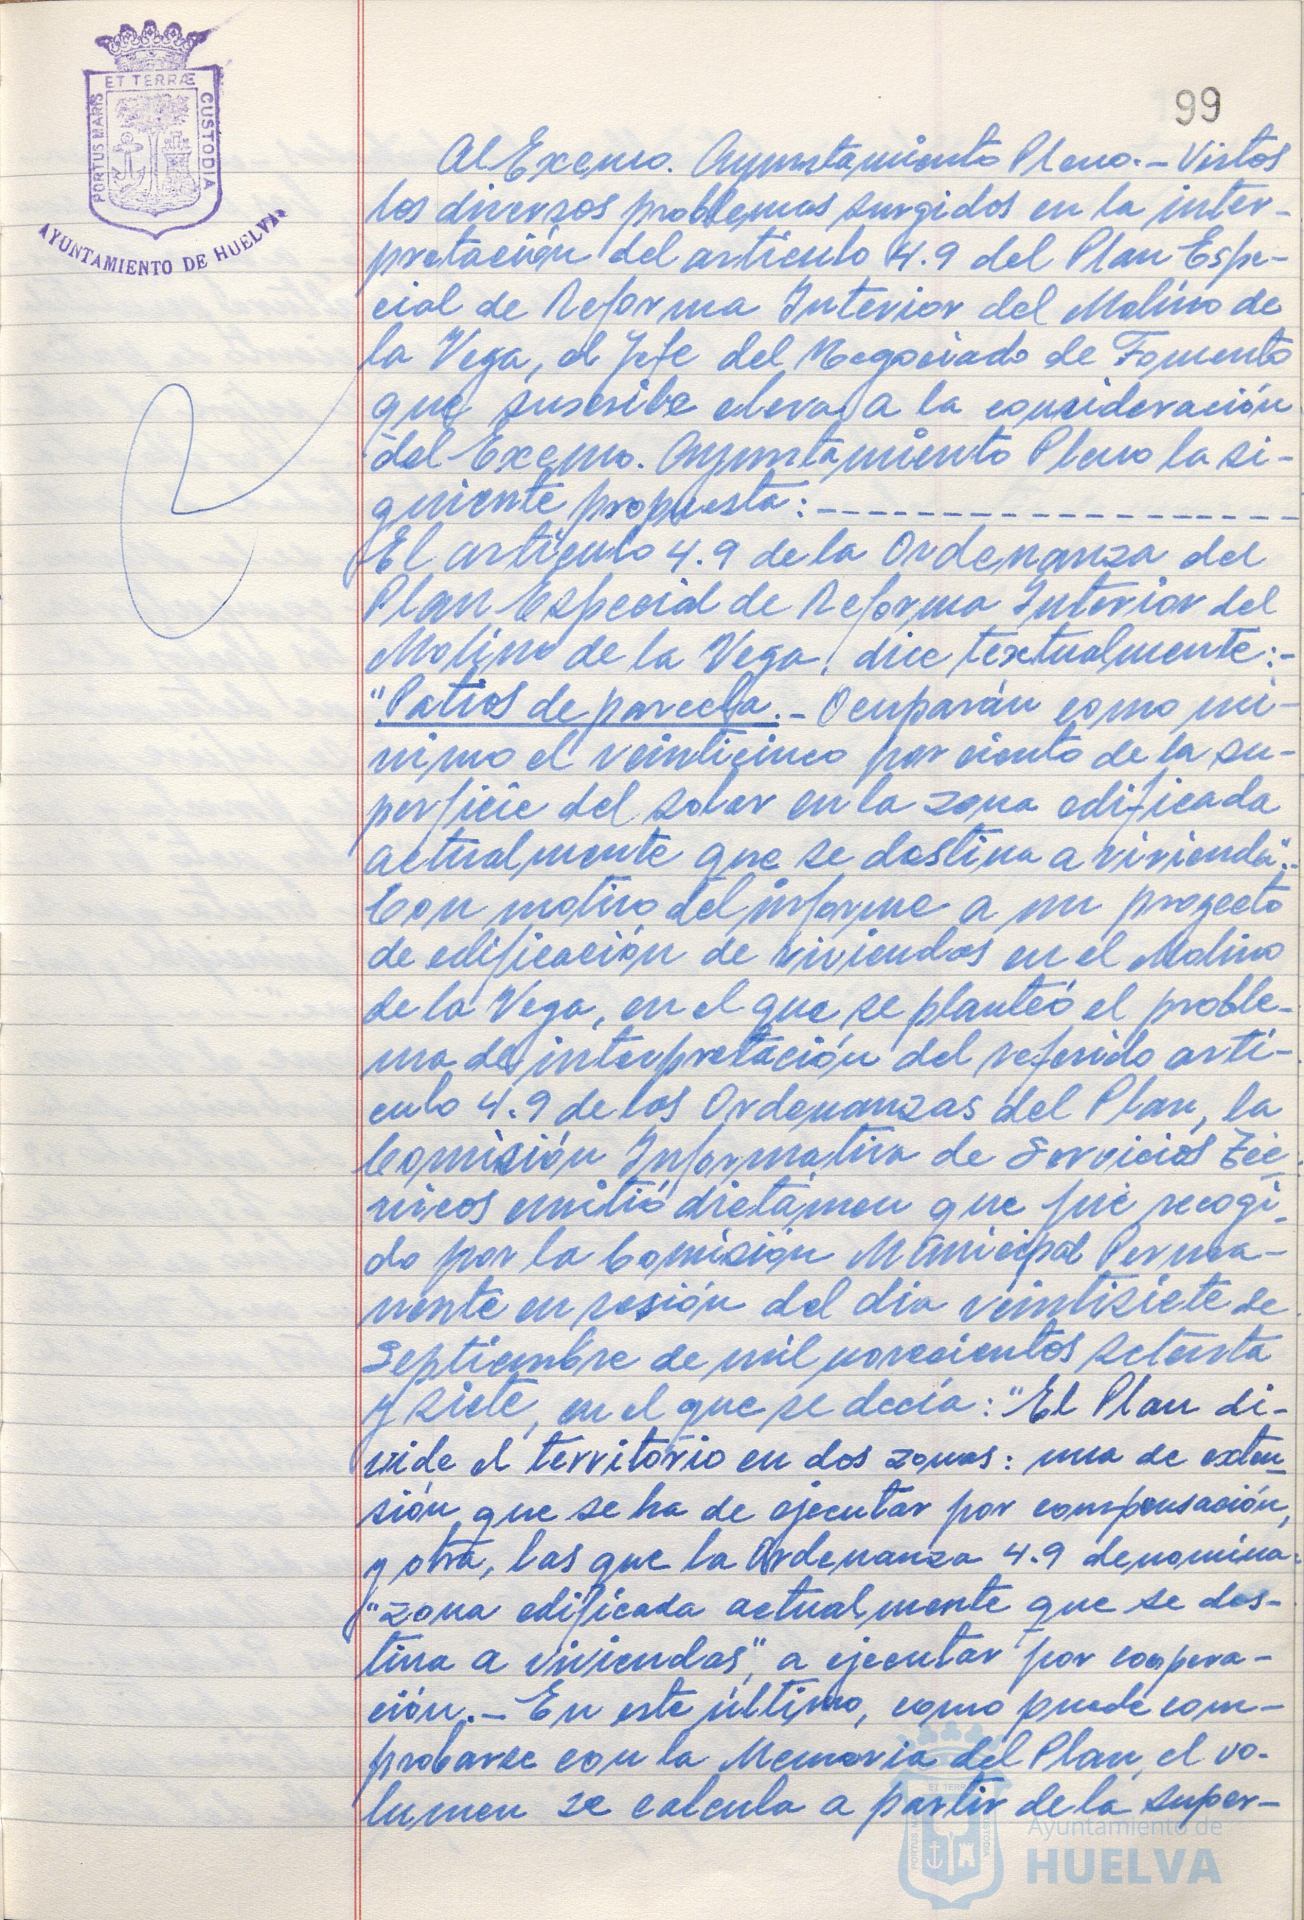 ET TERRÆ
PORTUS MARIS
CUSTODIA
AYUNTAMIENTO DE HUELVA
99
Al Excmo. Ayuntamiento Pleno.- Vistos
los diversos problemas surgidos en la inter-
pretación del artículo 4.9 del Plan Espe-
cial de Reforma Interior del Molino de
la Vega, el Jefe del Negociado de Fomento
que suscribe eleva a la consideración
del Excmo. Ayuntamiento Pleno la si-
guiente propuesta:-------------------
El artículo 4.9 de la Ordenanza del
Plan Especial de Reforma Interior del
Molino de la Vega, dice textualmente:-
"Patios de parcela.- Ocuparán como mí-
nimo el veinticinco por ciento de la su-
perficie del solar en la zona edificada
actualmente que se destina a vivienda".-
Con motivo del informe a un proyecto
de edificación de viviendas en el Molino
de la Vega, en el que se planteó el proble-
ma de interpretación del referido artí-
culo 4.9 de las Ordenanzas del Plan, la
Comisión Informativa de Servicios Téc-
nicos emitió dictámen que fué recogi-
do por la Comisión Municipal Perma-
nente en sesión del día veintisiete de
Septiembre de mil novecientos setenta
y siete, en el que se decía: "El Plan di-
vide el territorio en dos zonas: una de exten-
sión que se ha de ejecutar por compensación,
y otra, las que la Ordenanza 4.9 denomina:
"zona edificada actualmente que se des-
tina a viviendas", a ejecutar por coopera-
ción.- En este último, como puede com-
probarse con la Memoria del Plan, el vo-
lumen se calcula a partir de la super-
ET TERRÆ
PORTUS MARIS
CUSTODIA
Ayuntamiento de
HUELVA